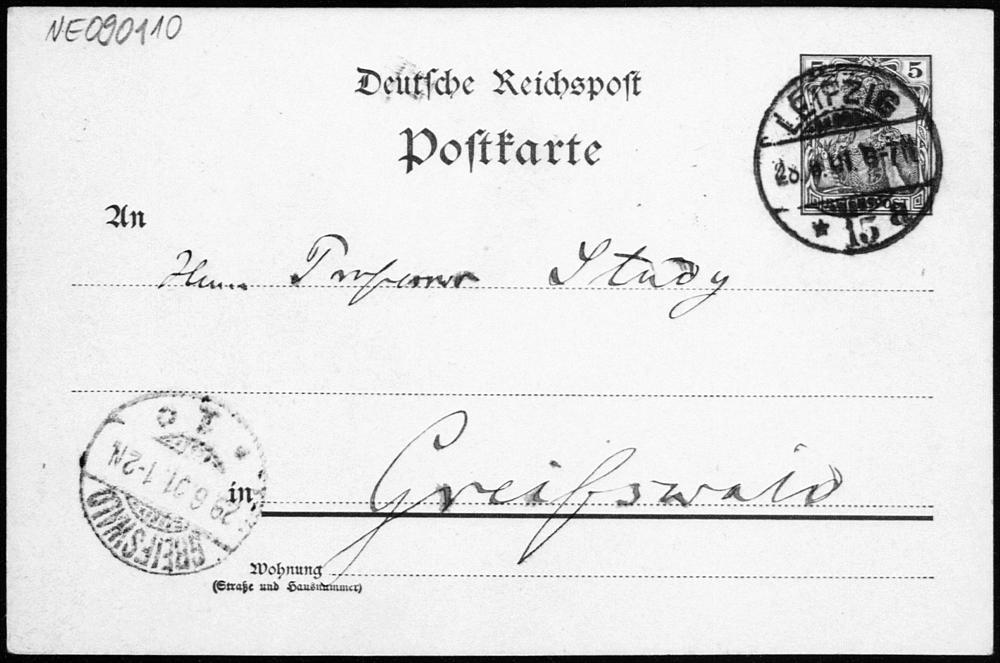 NE090110
Deutsche Reichspost
Postkarte
5 5
LEIPZIG
6-7N
* 15 a
An
Herrn Professor Study
1-2N
29.6.01.
GREIFSWALD
in Greifswald
Wohnung
(Straße und Hausnummer)